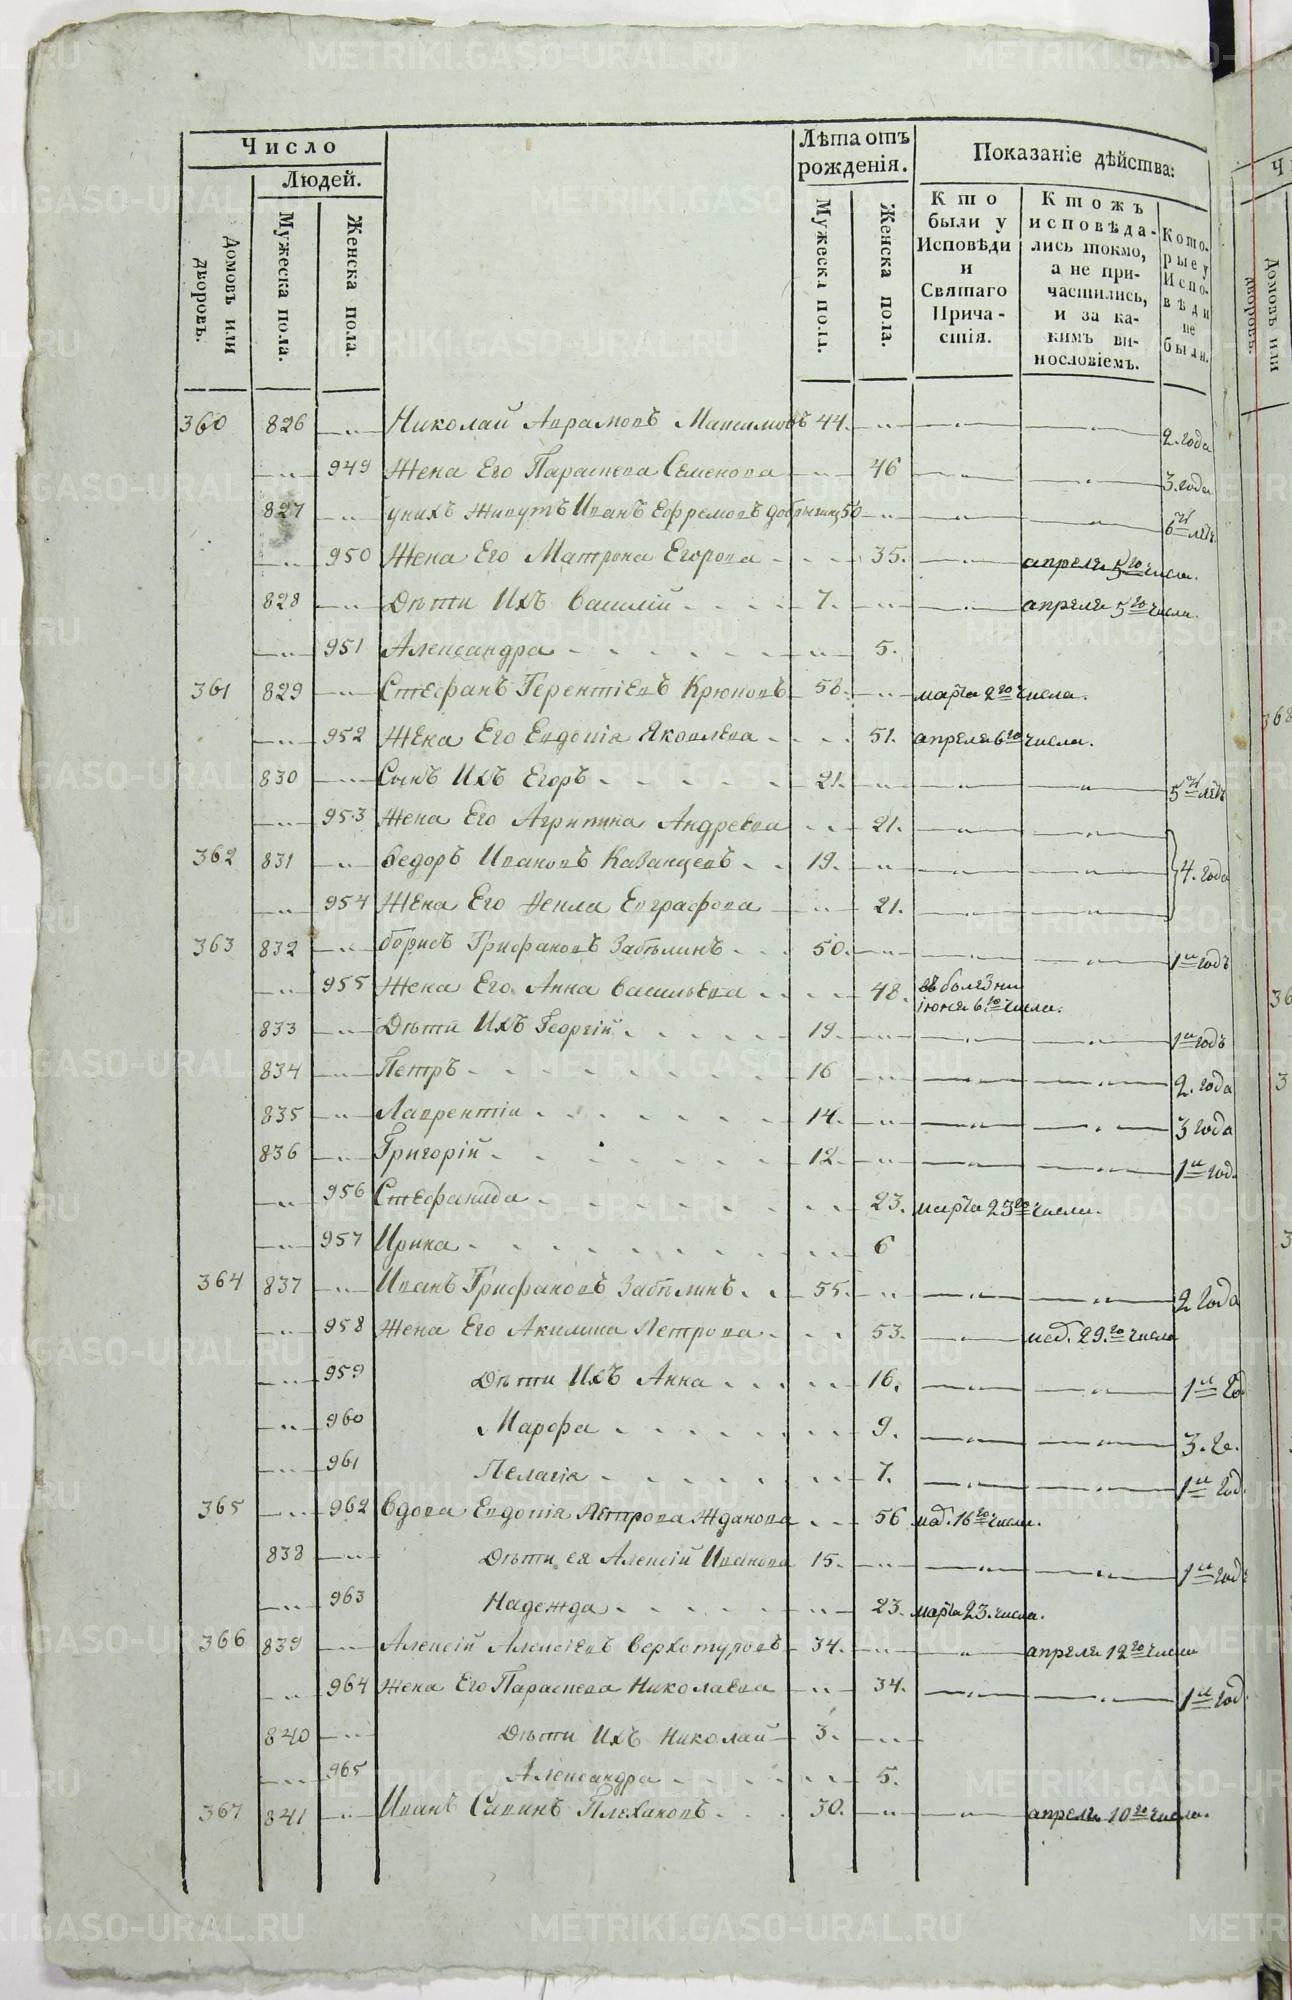 Число
Людей.
Домовъ или дворовъ.
Мужеска пола.
Женска пола.
Лѣта отъ рожденія.
Мужеска пола.
Женска пола.
Показаніе дѣйства:
Кто были у Исповѣди и Святаго Причастія.
Ктожъ исповѣдались токмо, а не причастились, и за какимъ винословіемъ.
Которые у Исповѣди не были.
360 826 Николай Аврамовъ Максимовъ 44. 2. года
949 Жена Его Параскева Семенова 46 3. года
827 у нихъ живутъ Иванъ Ефремовъ Добрынинъ 50 6ть лѣтъ
950 Жена Его Матрона Егорова 35. апреля 5го числа.
828 Дѣти Ихъ Василій 7. апреля 5го числа.
951 Александра 5.
361 829 Стефанъ Терентіевъ Крюковъ 58. марта 2го числа.
952 Жена Его Евдокія Яковлева 51. апреля 6го числа.
830 Сынъ Ихъ Егоръ 21. 5ть лѣтъ
953 Жена Его Агрипина Андреева 21.
362 831 Федоръ Ивановъ Казанцевъ 19. 4. года
954 Жена Его Фекла Евграфова 21.
363 832 Борисъ Трифановъ Забѣлинъ 50. 1й годъ
955 Жена Его Анна Васильева 48. въ болезни іюня 6го числа.
833 Дѣти Ихъ Георгій 19. 1й годъ
834 Петръ 16 2. года
835 Лаврентіи 14. 3 года
836 Григорій 12. 1й год.
956 Стефанида 23. марта 23го числа.
957 Ирина 6
364 837 Иванъ Трифановъ Забѣлинъ 55. 2 года
958 Жена Его Акилина Петрова 53. 29.го числа
959 Дѣти Ихъ Анна 16. 1й
960 Марфа 9. 3. го.
961 Пелагія 7. 1й год.
365 962 Вдова Евдокія Петрова Жданова 56 16го числа.
838 Дѣти ея Алексій Иванова 15. 1й год
963 Надежда 23. марта 23. числа.
366 839 Алексій Алексіевъ Верхотуровъ 34. апреля 12го числа
964 Жена Его Параскева Николаева 34. 1й год.
840 Дѣти Ихъ Николай 3.
965 Александра 5.
367 841 Иванъ Савинъ Плехановъ 30. апреля 10го числа.
METRIKI.GASO-URAL.RU